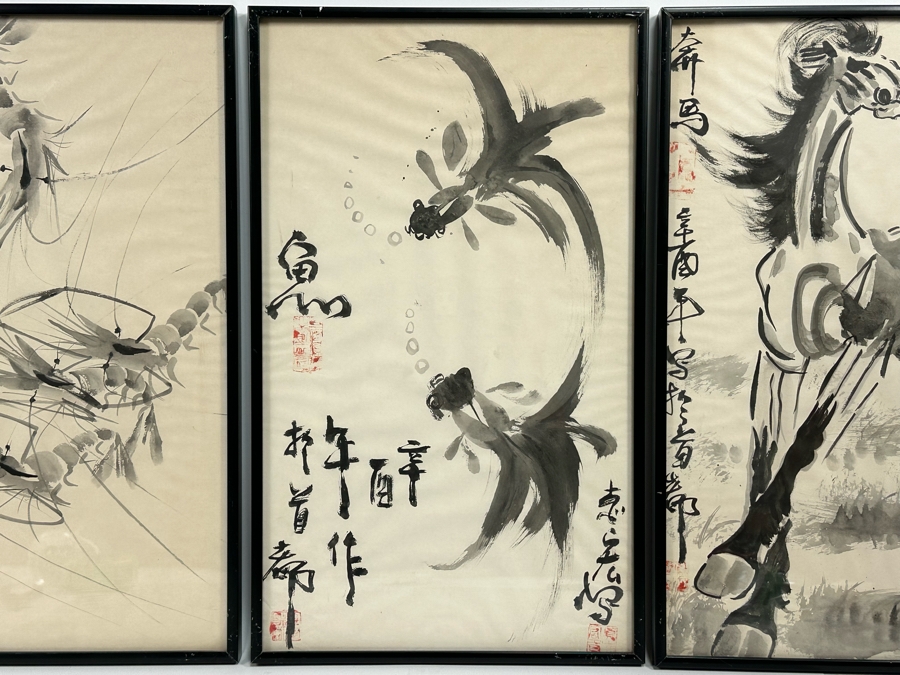 魚
辛
酉
年作
於首都
志宏写
奔马
辛酉年写於首都